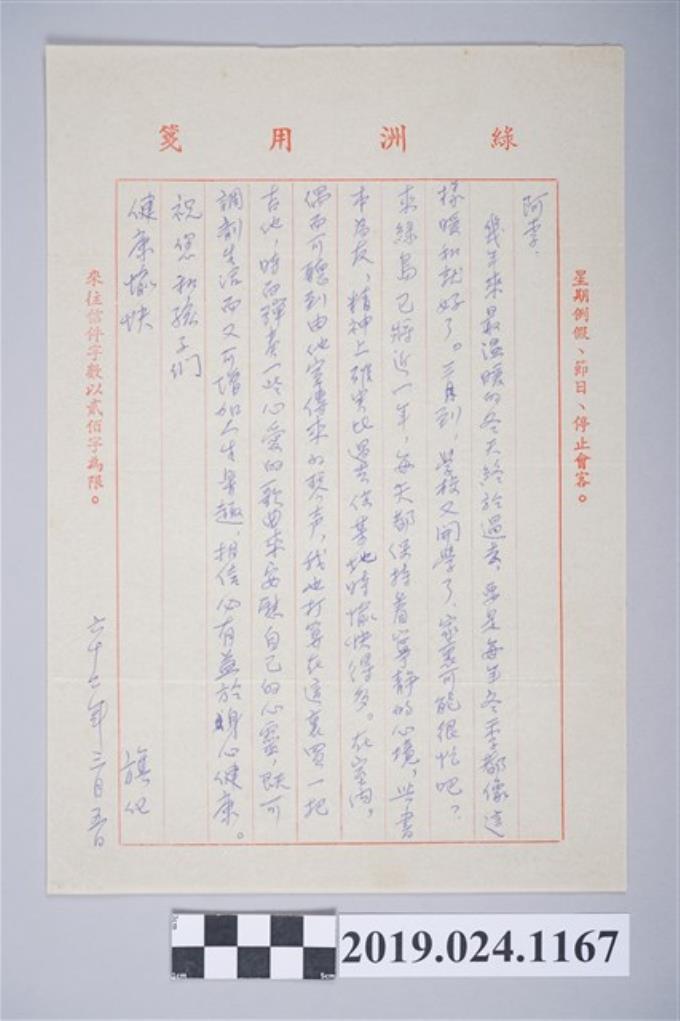 綠洲用箋
星期例假、節日、停止會客。
阿李:
幾年來最溫暖的冬天終於過去,要是每年冬季都像這
樣暖和就好了。三月到,學校又開學了,家裏可能很忙吧?
來綠島已將近一年,每天都保持着寧靜的心境,與書
本為友,精神上確実比過去在某地時愉快得多。在室內,
偶而可聽到由他室傳來的琴声,我也打算在這裏買一把
吉他,時而彈奏一些心愛的歌曲來安慰自己的心靈,既可
調劑生活而又可增加人生樂趣,相信必有益於身心健康。
祝您和孩子們
健康愉快
旗化
六十七年三月五日
來往信件字數以貳佰字為限。
2019.024.1167